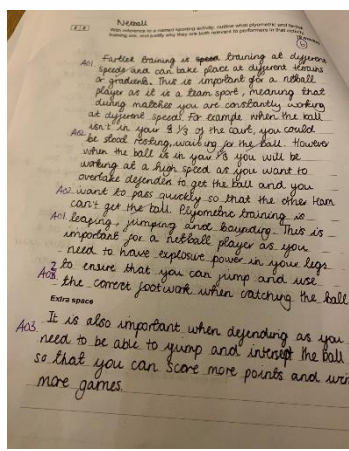 Netball
With reference to a named sporting activity, outline what plyometric and fartlek
training are, and justify why they are both relevant to performers in that activity.
A01 Fartlek training is speed training at different
speeds and can take place at different terrains
or gradients. This is important for a netball
player as it is a team sport, meaning that
during matches you are constantly working
at different speeds. For example when the ball
isn't in your 1/3 of the court, you could
A02 be stood resting, waiting for the ball. However
when the ball is in your 1/3 you will be
working at a high speed as you want to
overtake defender to get the ball and you
A02 want to pass quickly so that the other team
can't get the ball. Plyometric training is
A01 leaping, jumping and bounding. This is
important for a netball player as you
need to have explosive power in your legs
A03 to ensure that you can jump and use
the correct footwork when catching the ball
Extra space
A03 It is also important when defending as you
need to be able to jump and intersept the ball
so that you can score more points and win
more games.